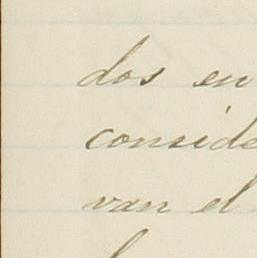 dos en
conside
van el